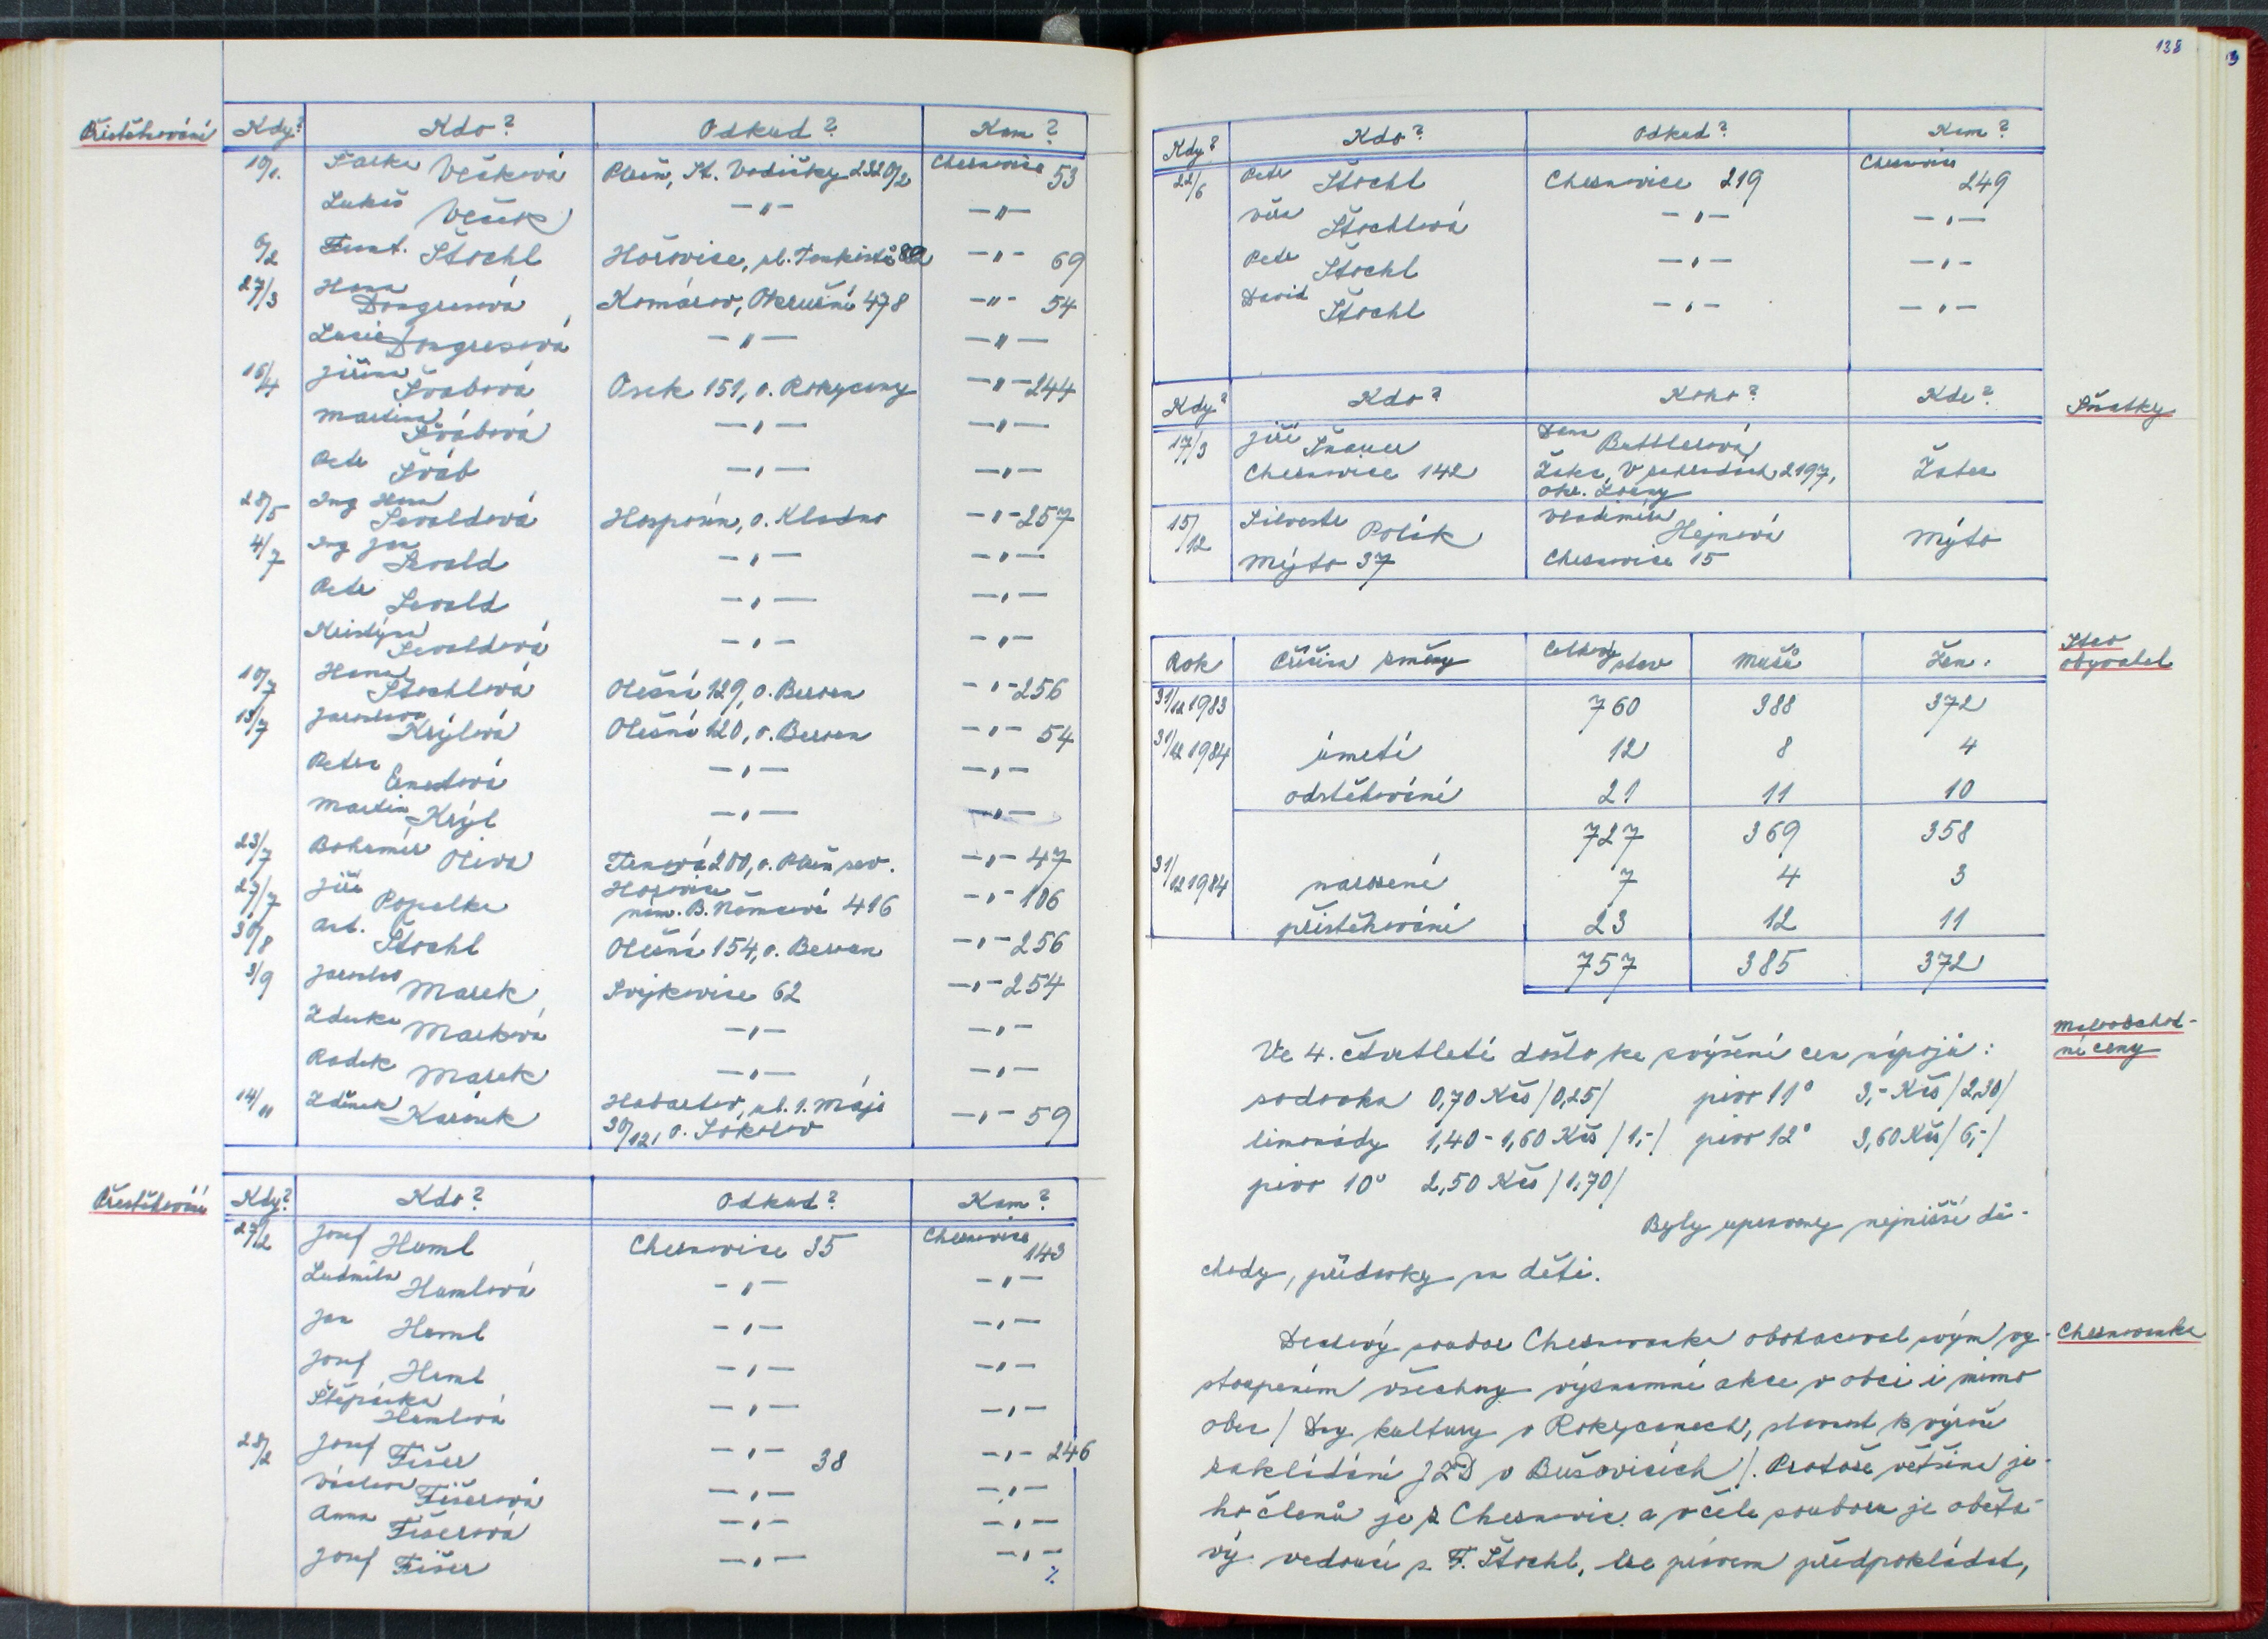 Přistěhování
Kdy? Kdo? Odkud? Kam?
10/1. Šárka Vlčková Plzeň, St. Vodičky 2320/2 Chesnovice 53
Lukáš Vlček —"— —"—
6/2 Frant. Štochl Hořovice, pl. Tankistů —"— 69
27/3 Hana Dongresová Komárov, Okružní 478 —"— 54
Lucie Dongresová —"— —"—
16/4 Jiřina Švábová Osek 151, o. Rokycany —"— 244
Martina Švábová —"— —"—
Petr Šváb —"— —"—
28/5 Ing Hana Sevaldová Hospozín, o. Kladno —"— 257
4/7 Ing Jan Sevald —"— —"—
Petr Sevald —"— —"—
Kristýna Sevaldová —"— —"—
10/7 Hana Štochlová Olešná 129, o. Beroun —"— 256
13/7 Jaroslava Krýlová Olešná 120, o. Beroun —"— 54
Petra Ernestová —"— —"—
Martin Krýl —"— —"—
23/7 Bohumír Oliva 200, o. Plzeň sev. —"— 47
27/7 Jiří Popelka Hořovice nám. B. Němcové 416 —"— 106
30/8 Ant. Štochl Olešná 154, o. Beroun —"— 256
3/9 Jaroslav Marek Svojkovice 62 —"— 254
Zdenka Marková —"— —"—
Radek Marek —"— —"—
14/11 Zdeněk Habartov, ul. 1. Máje —"— 59
o. Sokolov
Přestěhování
Kdy? Kdo? Odkud? Kam?
27/2 Josef Heml Chesnovice 35 Chesnovice 143
Ludmila Hemlová —"— —"—
Jan Heml —"— —"—
Josef Heml —"— —"—
Štěpánka Hemlová —"— —"—
28/2 Josef Fišer —"— 38 —"— 246
Václava Fišerová —"— —"—
Anna Fišerová —"— —"—
Josef Fišer —"— —"—
%
138
Kdy? Kdo? Odkud? Kam?
22/6 Petr Štochl Chesnovice 219 Chesnovice 249
Věra Štochlová —"— —"—
Petr Štochl —"— —"—
David Štochl —"— —"—
Sňatky
Kdy? Kdo? Koho? Kde?
17/3 Jiří Šnauer Dana Buttlerová
Chesnovice 142 Žatec, V zahradách 2197, Žatec
okr. Louny
15/12 Silvestr Polák Vladimíra Hejnová Mýto
Mýto 37 Chesnovice 15
Stav
obyvatel
Rok Příčina změny Celkový stav Mužů Žen
31/12 1983 760 388 372
31/12 1984 úmrtí 12 8 4
odstěhování 21 11 10
727 369 358
31/12 1984 narození 7 4 3
přistěhování 23 12 11
757 385 372
Maloobchod-
ní ceny
Ve 4. čtvrtletí došlo ke zvýšení cen nápojů:
sodovka 0,70 Kčs /0,25/ pivo 11° 3,- Kčs /2,30/
limonády 1,40 - 1,60 Kčs /1,-/ pivo 12° 3,60 Kčs /6,-/
pivo 10° 2,50 Kčs /1,70/
Byly upraveny nejnižší dů-
chody, přídavky na děti.
Chesnovanka
Dechový soubor Chesnovanka obohacoval svým vy-
stoupením všechny významné akce v obci i mimo
obec / Dny kultury v Rokycanech, slavnost k výročí
zakládání JZD v Bušovicích /. Protože většina je-
ho členů je z Chesnovic a v čele souboru je oběta-
vý vedoucí s. F. Štochl, lze právem předpokládat,